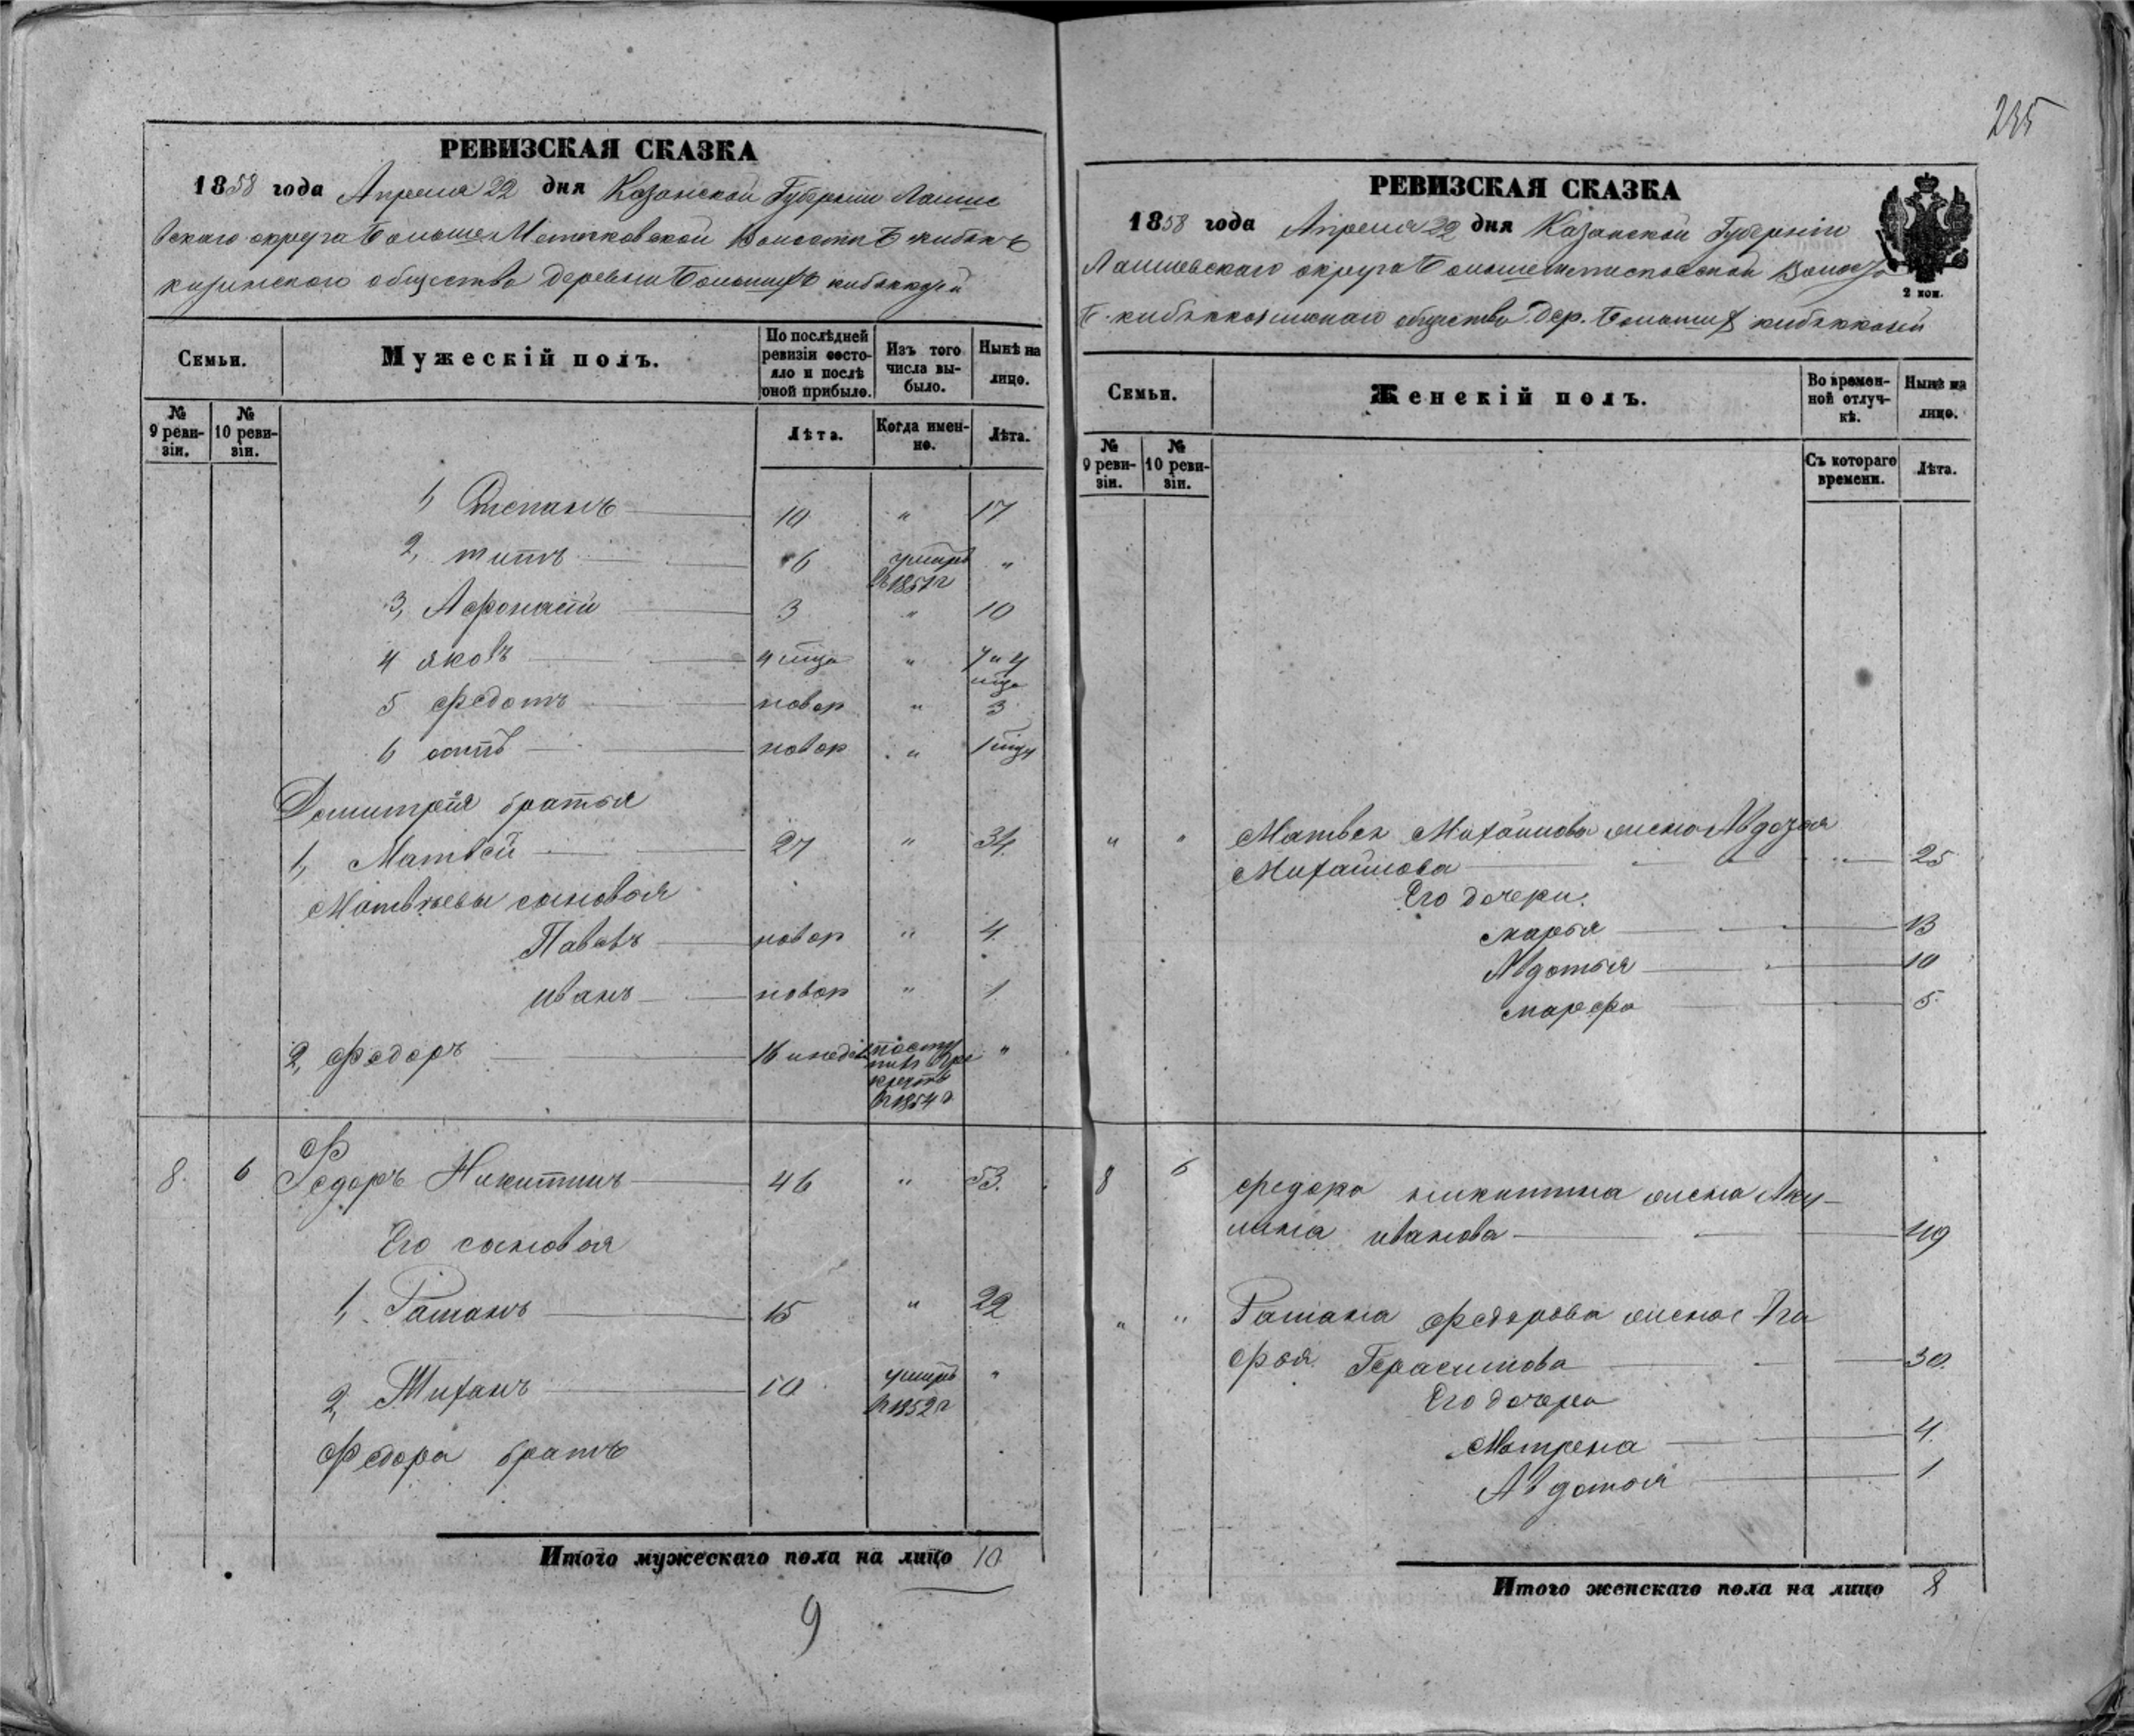 235
РЕВИЗСКАЯ СКАЗКА
1858 года Апреля 22 дня Казанской Губернии Лаише
вскаго округа Больше Метесковской Волости Б кибякъ
козинского общества деревни Большихъ кибякозей
Семьи.
Мужескій полъ.
По послѣдней ревизіи состояло и послѣ оной прибыло.
Изъ того числа выбыло.
Нынѣ на лицо.
№ 9 ревизіи.
№ 10 ревизіи.
Лѣта.
Когда именно.
Лѣта.
1, Степанъ 10 " 17
2, титъ 6 умиръ "
в 1851 г
3, Афонасій 3 " 10
4 яковъ 4 мца " 7 и 4
мца
5 федотъ новор " 3
6 новор " 1 мцу
Домитрія братья
1, Матвей 27 " 34.
Матвѣевы сыновья
Павелъ новор " 4.
иванъ новор " 1
2, федоръ 16 "
в 1854 г
8. 6 Федоръ Никитинъ 46 " 53.
Его сыновья
1, Раманъ 15 " 22
2, Тиханъ 10 умиръ "
в 1852 г
Федора братъ
Итого мужескаго пола на лицо 10
9
РЕВИЗСКАЯ СКАЗКА
1858 года Апреля 22 дня Казанской Губерніи
Лаишевскаго округа Волос
Б. общества Дер. Большихъ кибяккозей
2 коп.
Семьи.
Женскій полъ.
Во временной отлучкѣ.
Нынѣ на лицо.
№ 9 ревизіи.
№ 10 ревизіи.
Съ котораго времени.
Лѣта.
" " Матвея Михайлова жена Авдотья
Михайлова 25
Его дочери.
марья 13
Авдотья 10
марефа 5.
8 6 федора никитина жена Аку-
лина иванова 49
" " Рамана федорова жена Ага
фья Герасимова 30.
Его дочери
Матрена 4.
Авдотья 1
Итого женскаго пола на лицо 8